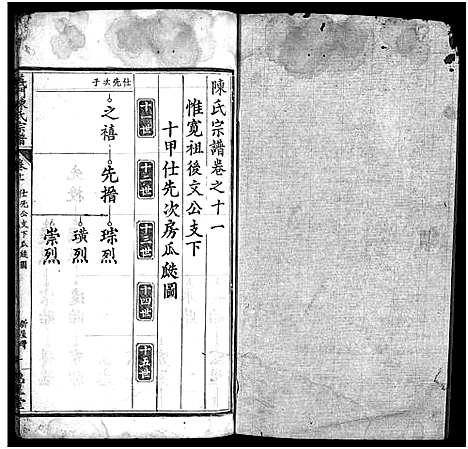 陳氏宗譜卷之十一
惟寬祖後文公支下
十甲仕先次房瓜瓞圖
十一世
十二世
十三世
十四世
十五世
仕先次子
之禧
先搢
琮烈
璜烈
崇烈
陳氏宗譜
仕先公支下瓜瓞圖